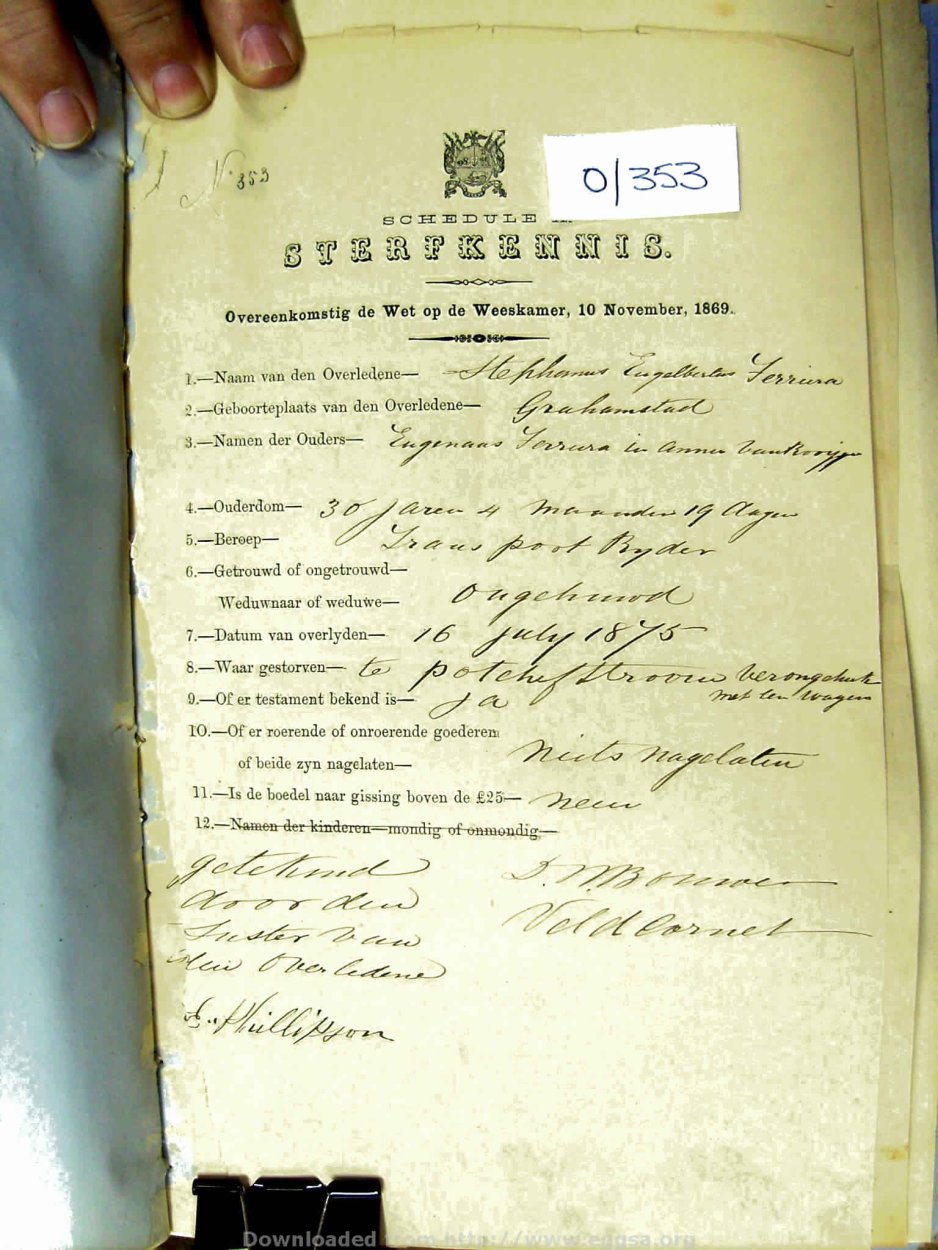 No 353
0/353
SCHEDULE
STERFKENNIS.
Overeenkomstig de Wet op de Weeskamer, 10 November, 1869.
1.—Naam van den Overledene— Stephanus Engelbertus Ferriera
2.—Geboorteplaats van den Overledene— Grahamstad
3.—Namen der Ouders— Eugenaas Ferriera en Anna van Rooijen
4.—Ouderdom— 30 Jaren 4 maanden 19 dagen
5.—Beroep— Transpoot Ryder
6.—Getrouwd of ongetrouwd—
Weduwnaar of weduwe— Ongehuwd
7.—Datum van overlyden— 16 July 1875
8.—Waar gestorven— te Potchefstroom verongelukt
met een wagen
9.—Of er testament bekend is— Ja
10.—Of er roerende of onroerende goederen
of beide zyn nagelaten— niets nagelaten
11.—Is de boedel naar gissing boven de £25— neen
12.—Namen der kinderen—mondig of onmondig—
getekend
door den
Suster van
den Overledene
E. Phillipson
Veld Cornet
Downloaded from http://www.eggsa.org